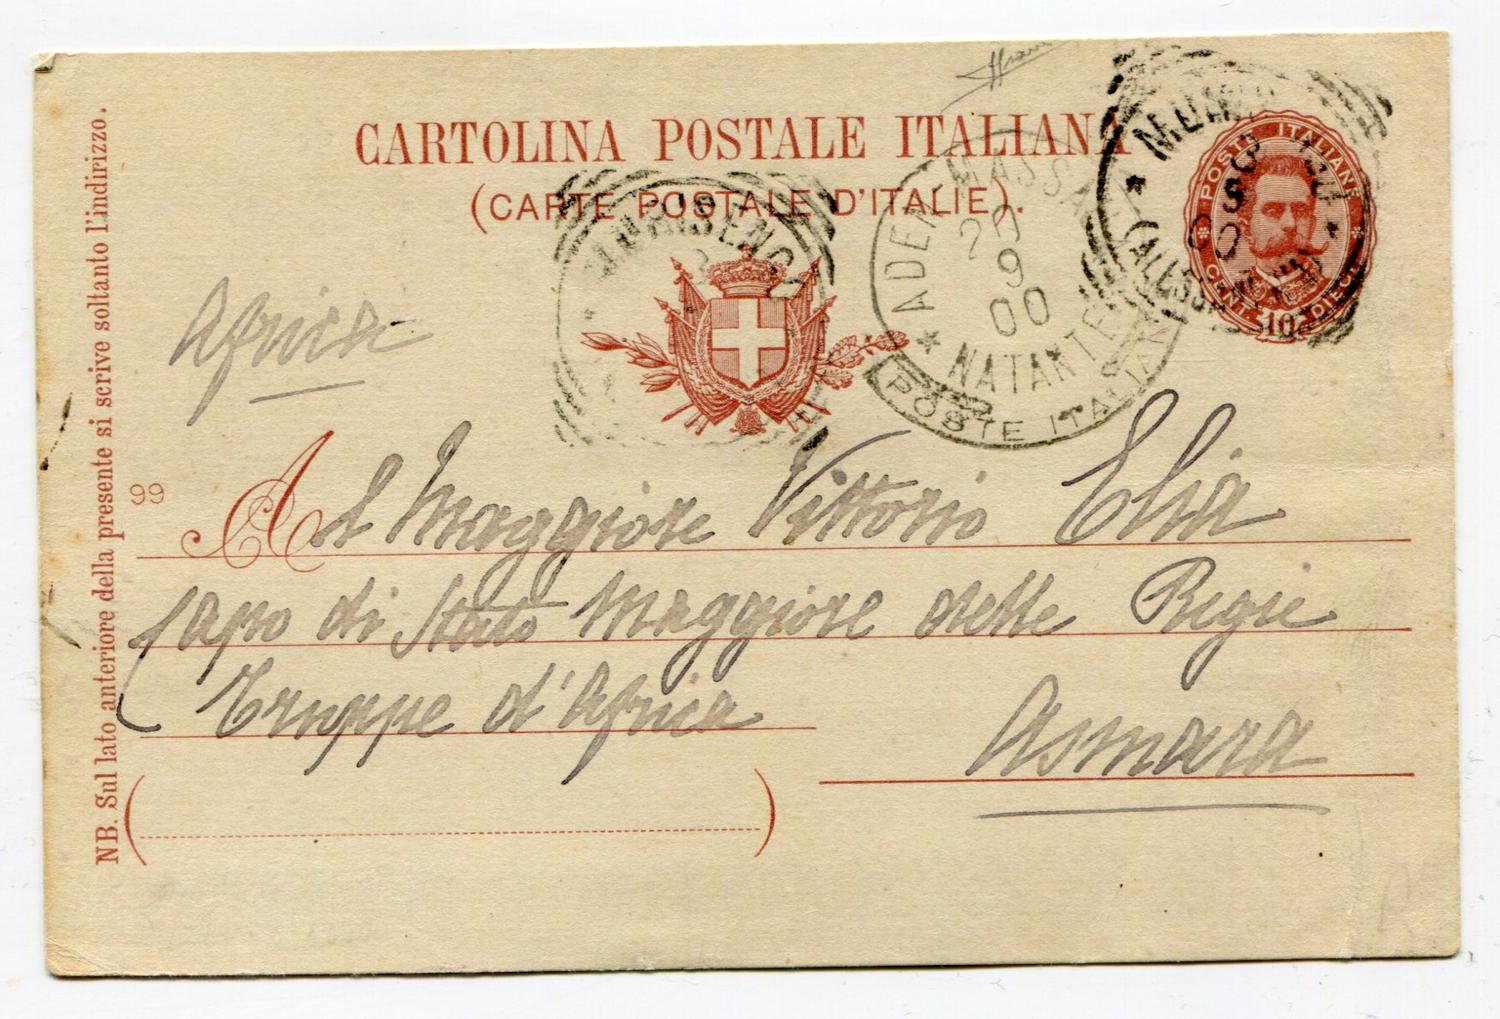 CARTOLINA POSTALE ITALIANA
(CARTE POSTALE D'ITALIE).
POSTE ITALIANE
CENT. 10 DIECI
MURISENGO
(ALESS
ADEN MASSA
20
9
00
NATANTE
POSTE ITALIANE
Africa
99
Al Maggiore Vittorio Elia
Capo di Stato Maggiore delle Regie
Truppe d'Africa
Asmara
NB. Sul lato anteriore della presente si scrive soltanto l'indirizzo.